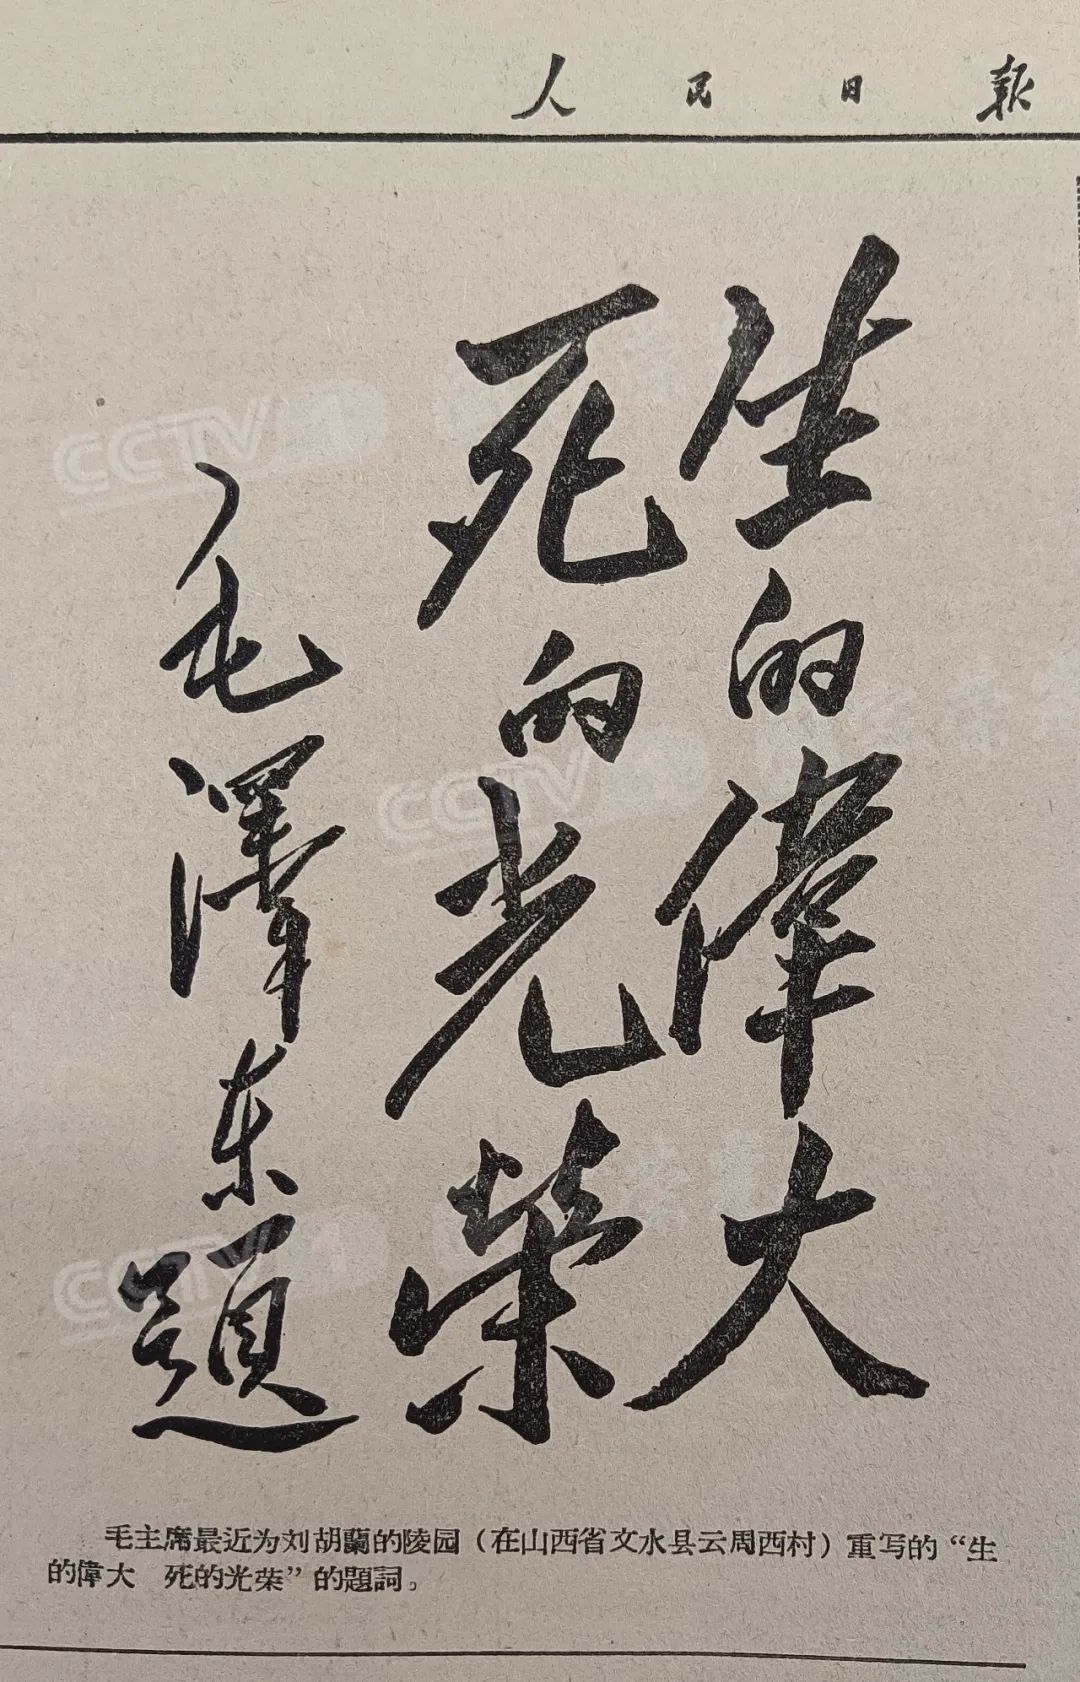 人民日報
生的偉大
死的光榮
毛澤东題
毛主席最近为刘胡蘭的陵园（在山西省文水县云周西村）重写的“生
的偉大　死的光荣”的題詞。
CCTV
CCTV
CCTV